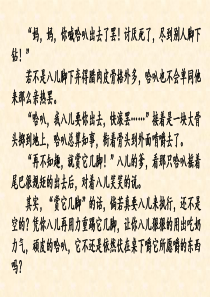 “妈，妈，你喊哈叭出去了罢！讨厌死了，尽到别人脚下
钻！”
若不是八儿脚下弃得腊肉皮骨格外多，哈叭也不会单同他
来那么亲热罢。
“哈叭，我八儿要你出去，快滚罢……”接着是一块大骨
头掷到地上，哈叭总算知事，衔着骨头到外面啃嚼去了。
“再不知趣，就赏它几脚！”八儿的爹，看那只哈叭摇着
尾巴很规矩的出去后，对着八儿笑笑的说。
其实，“赏它几脚”的话，倘若真要八儿来执行，还不是
空的？凭你八儿再用力重踢它几脚，让你八儿狠狠的用出吃奶
力气，顽皮的哈叭，它不还是依然伏在桌下啃它所愿啃的东西
吗？